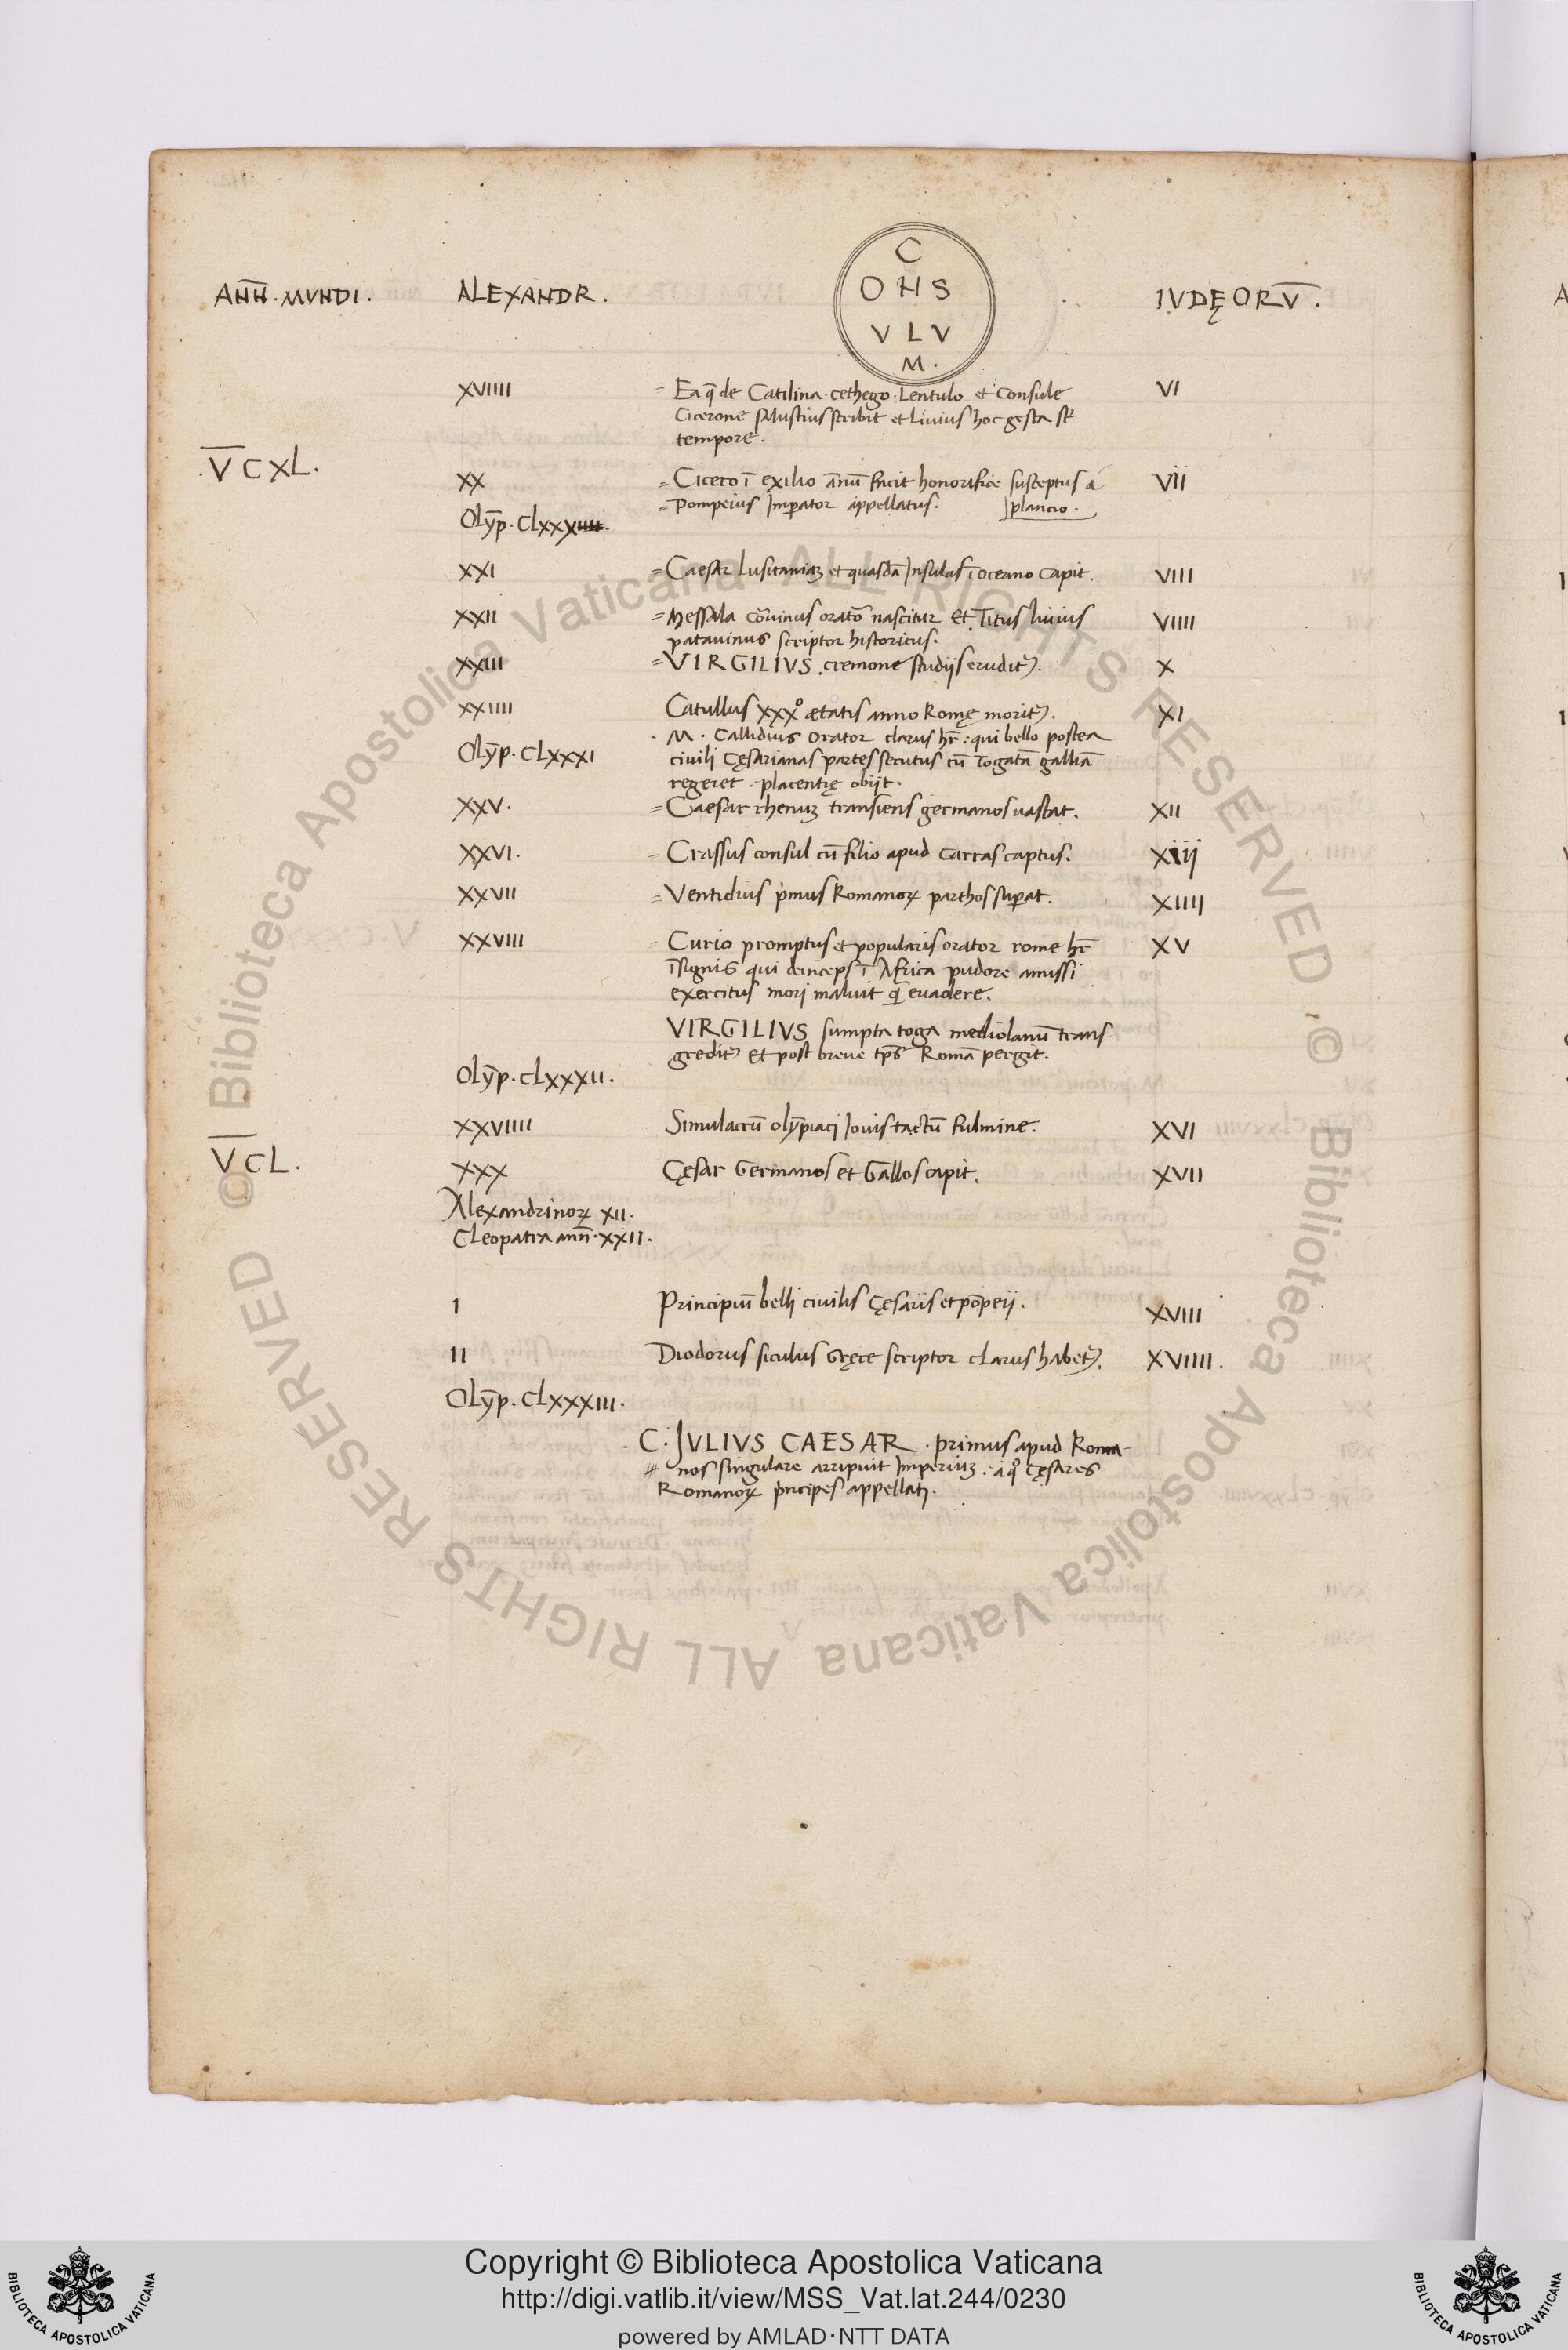 AN̄N̄. MVNDI.
ALEXANDR.
C
O N S
V L V
M.
IVDĘORV̄.
XVIIII
= Ea q̄ de Catilina. cethego. Lentulo et Consule
VI
Cicerone salustius scribit et Livius hoc gesta st̄
tempore.
.V̄ C XL.
XX
= Cicero ī exilio ānū facit honorifice susceptus á
VII
= Pompeius Imperator appellatus.
plancio.
Olȳp. CLXXX
XXI
= Caesar Lusitaniaꝫ et quasdā Insulas ī Oceano Capit.
VIII
XXII
= Messala Corvinus orator nascitur et Titus livius
VIIII
patavinus scriptor historicus.
XXIII
= VIRGILIVS. cremone studijs erudit᷑.
X
XXIIII
Catullus XXXº ætatis anno Romę morit᷑.
XI
. M. Callidius Orator clarus hr̄: qui bello postea
Olȳp. CLXXXI
civili Cęsarianas partes secutus cū Togatā galliā
regeret. placentię obijt.
XXV.
= Caesar rhenuꝫ transiens germanos vastat.
XII
XXVI.
= Crassus consul cū filio apud carras captus.
XIIJ
XXVII
= Ventidius p̓mus Romanoꝝ parthos suꝑat.
XIIIJ
XXVIII
= Curio promptus et popularis orator rome hr̄
XV
īsignis qui deinceps ī Africa pudore amissi
exercitus mori maluit q̄ evadere.
VIRGILIVS sumpta toga mediolanū trans
gredit᷑ et post breve tp̄s Romā pergit.
Olȳp. CLXXXII.
XXVIIII
Simulacrū olȳpiaci Iovis tactū fulmine.
XVI
V̄ CL.
XXX
Cęsar Germanos et Gallos capit.
XVII
Alexandrinoꝝ XII.
Cleopatra ann̄. XXII.
I
Principiū belli civilis Cęsaris et pōpeij.
XVIII
II
Diodorus siculus Gręce scriptor clarus habet᷑.
XVIIII.
Olȳp. CLXXXIII.
. C. IVLIVS CAESAR. primus apud Roma-
nos singulare arripuit Imperiuꝫ. á qº Cęsares
Romanoꝝ p̓ncipes appellati.
Copyright © Biblioteca Apostolica Vaticana
http://digi.vatlib.it/view/MSS_Vat.lat.244/0230
powered by AMLAD·NTT DATA
BIBLIOTECA APOSTOLICA VATICANA
BIBLIOTECA APOSTOLICA VATICANA
© Biblioteca Apostolica Vaticana ALL RIGHTS RESERVED
© Biblioteca Apostolica Vaticana ALL RIGHTS RESERVED